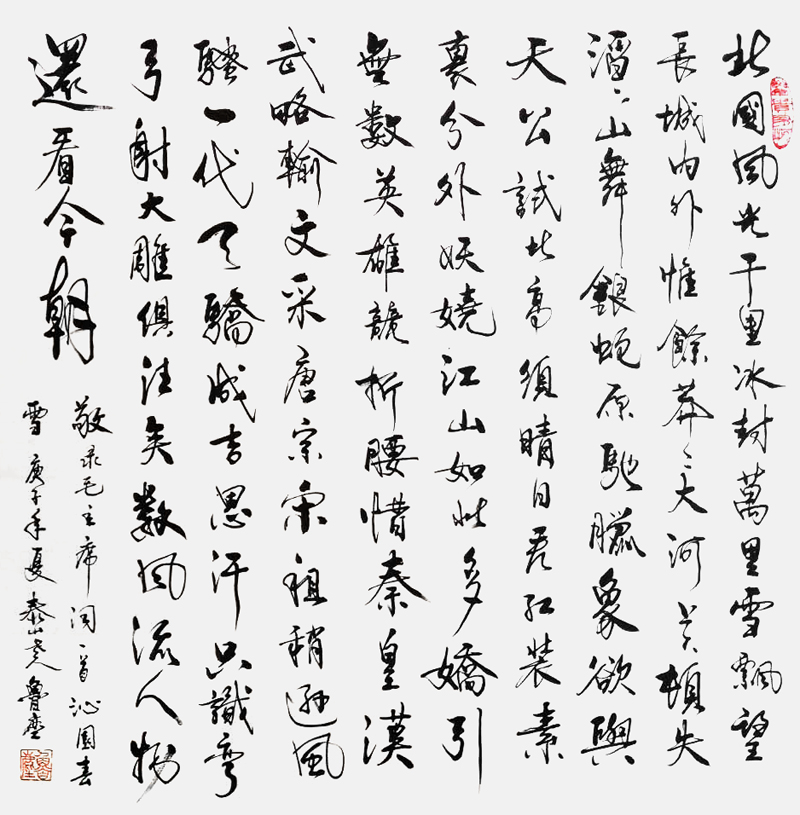 北國風光千里冰封萬里雪飄望
長城内外惟餘莽〻大河上下頓失
滔〻山舞銀蛇原馳臘象欲與
天公試比高須晴日看紅裝素
裹分外妖嬈江山如此多嬌引
無數英雄競折腰惜秦皇漢
武略輸文采唐宗宋祖稍遜風
騷一代天驕成吉思汗只識彎
弓射大雕俱往矣數風流人物
還看今朝
敬录毛主席词一首沁園春
雪庚子年夏泰山老人魯塵